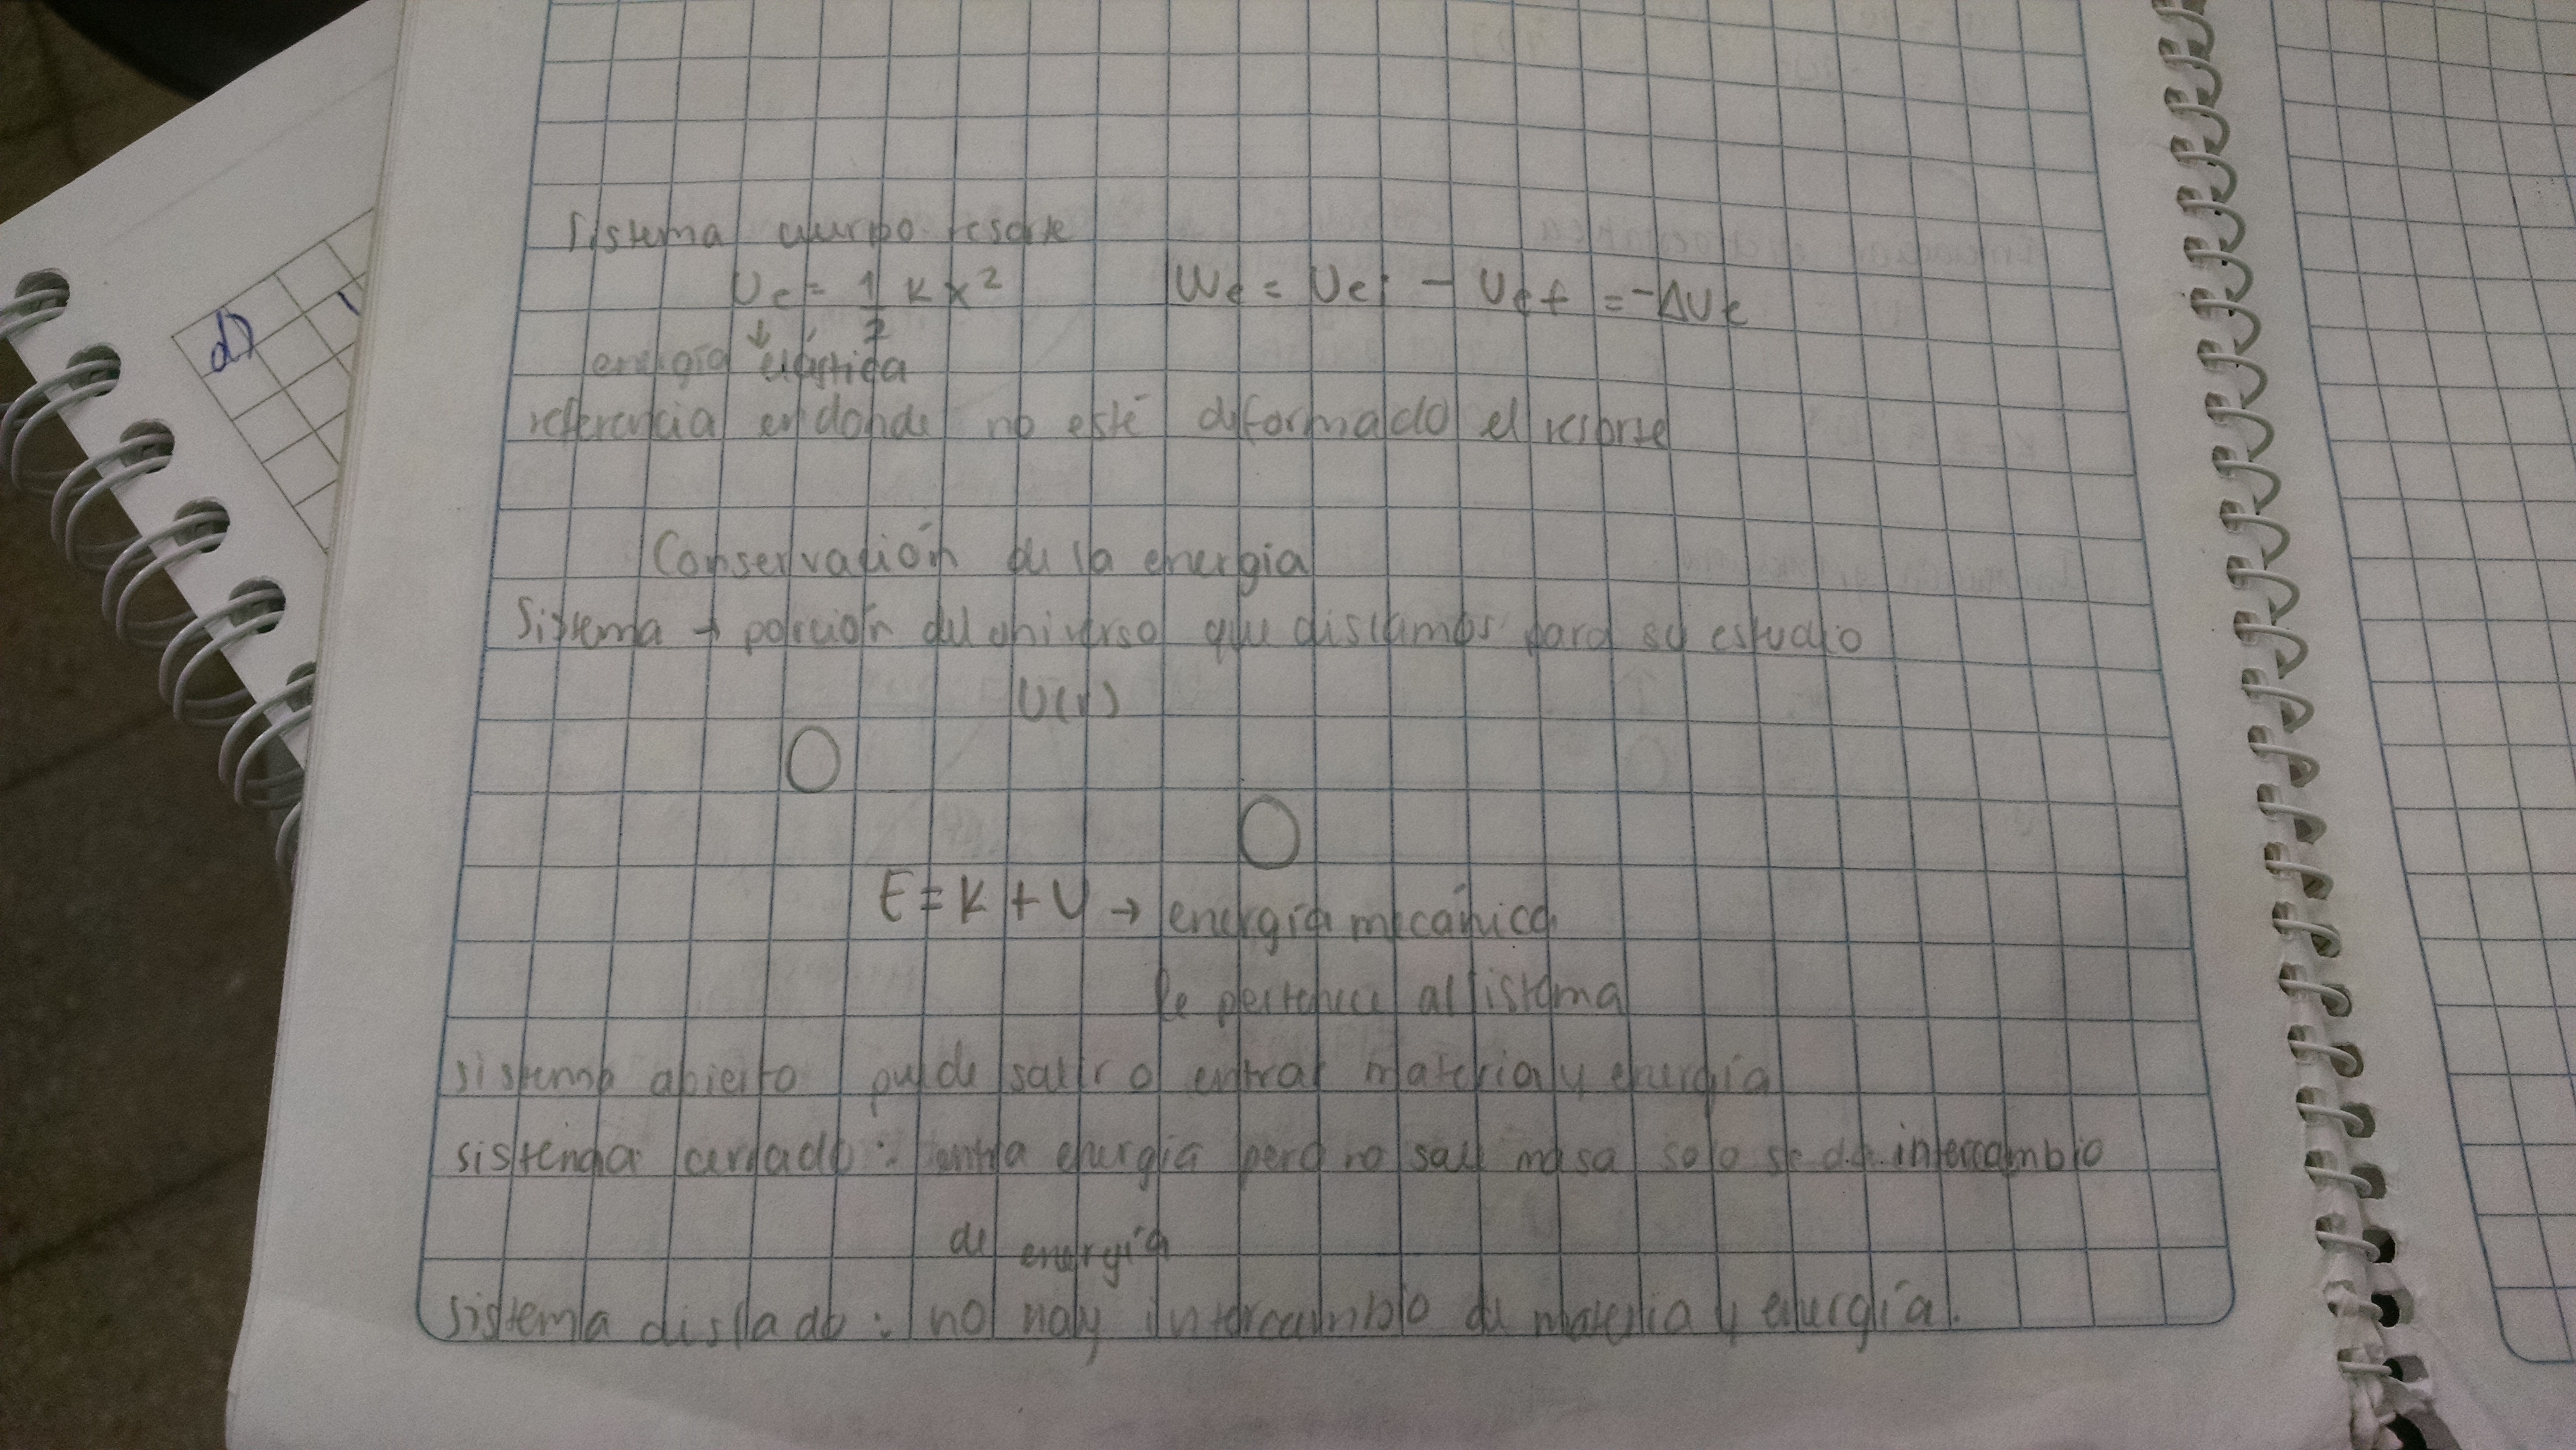 d)
Sistema cuerpo resorte
Ue = 1/2 k x²   We = Uei - Uef = -ΔUe
↓
energía elástica
referencia en donde no esté deformado el resorte
Conservación de la energia
Sistema → porción del universo que aislamos para su estudio
U(r)
E = K + U → energía mecánica
le pertenece al sistema
sistema abierto puede salir o entrar materia y energía
sistema cerrado: entra energía pero no sale masa solo se da intercambio
de energía
sistema aislado: no hay intercambio de materia y energía.